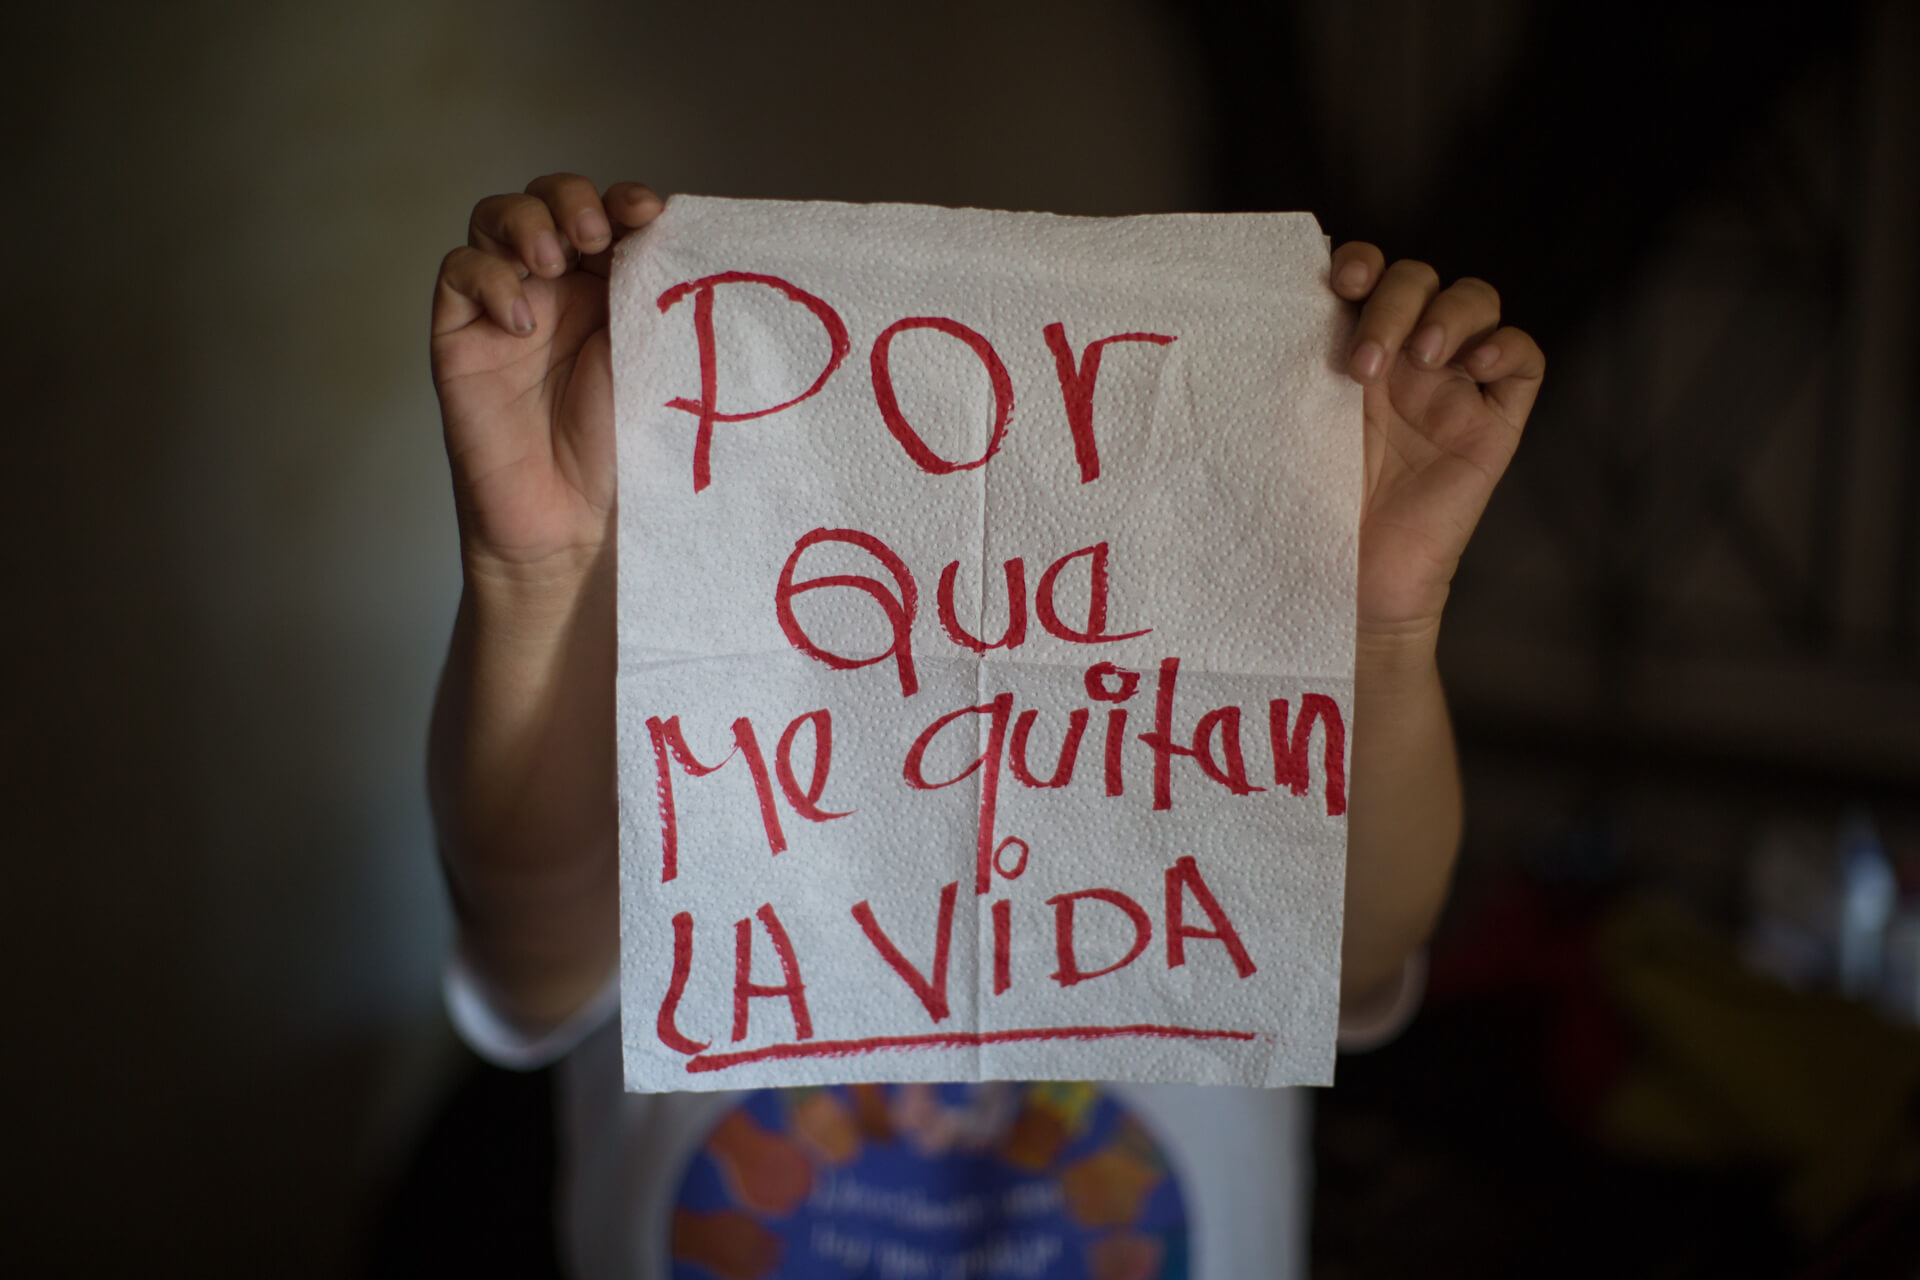 Por
Qua
Me quitan
LA ViDA